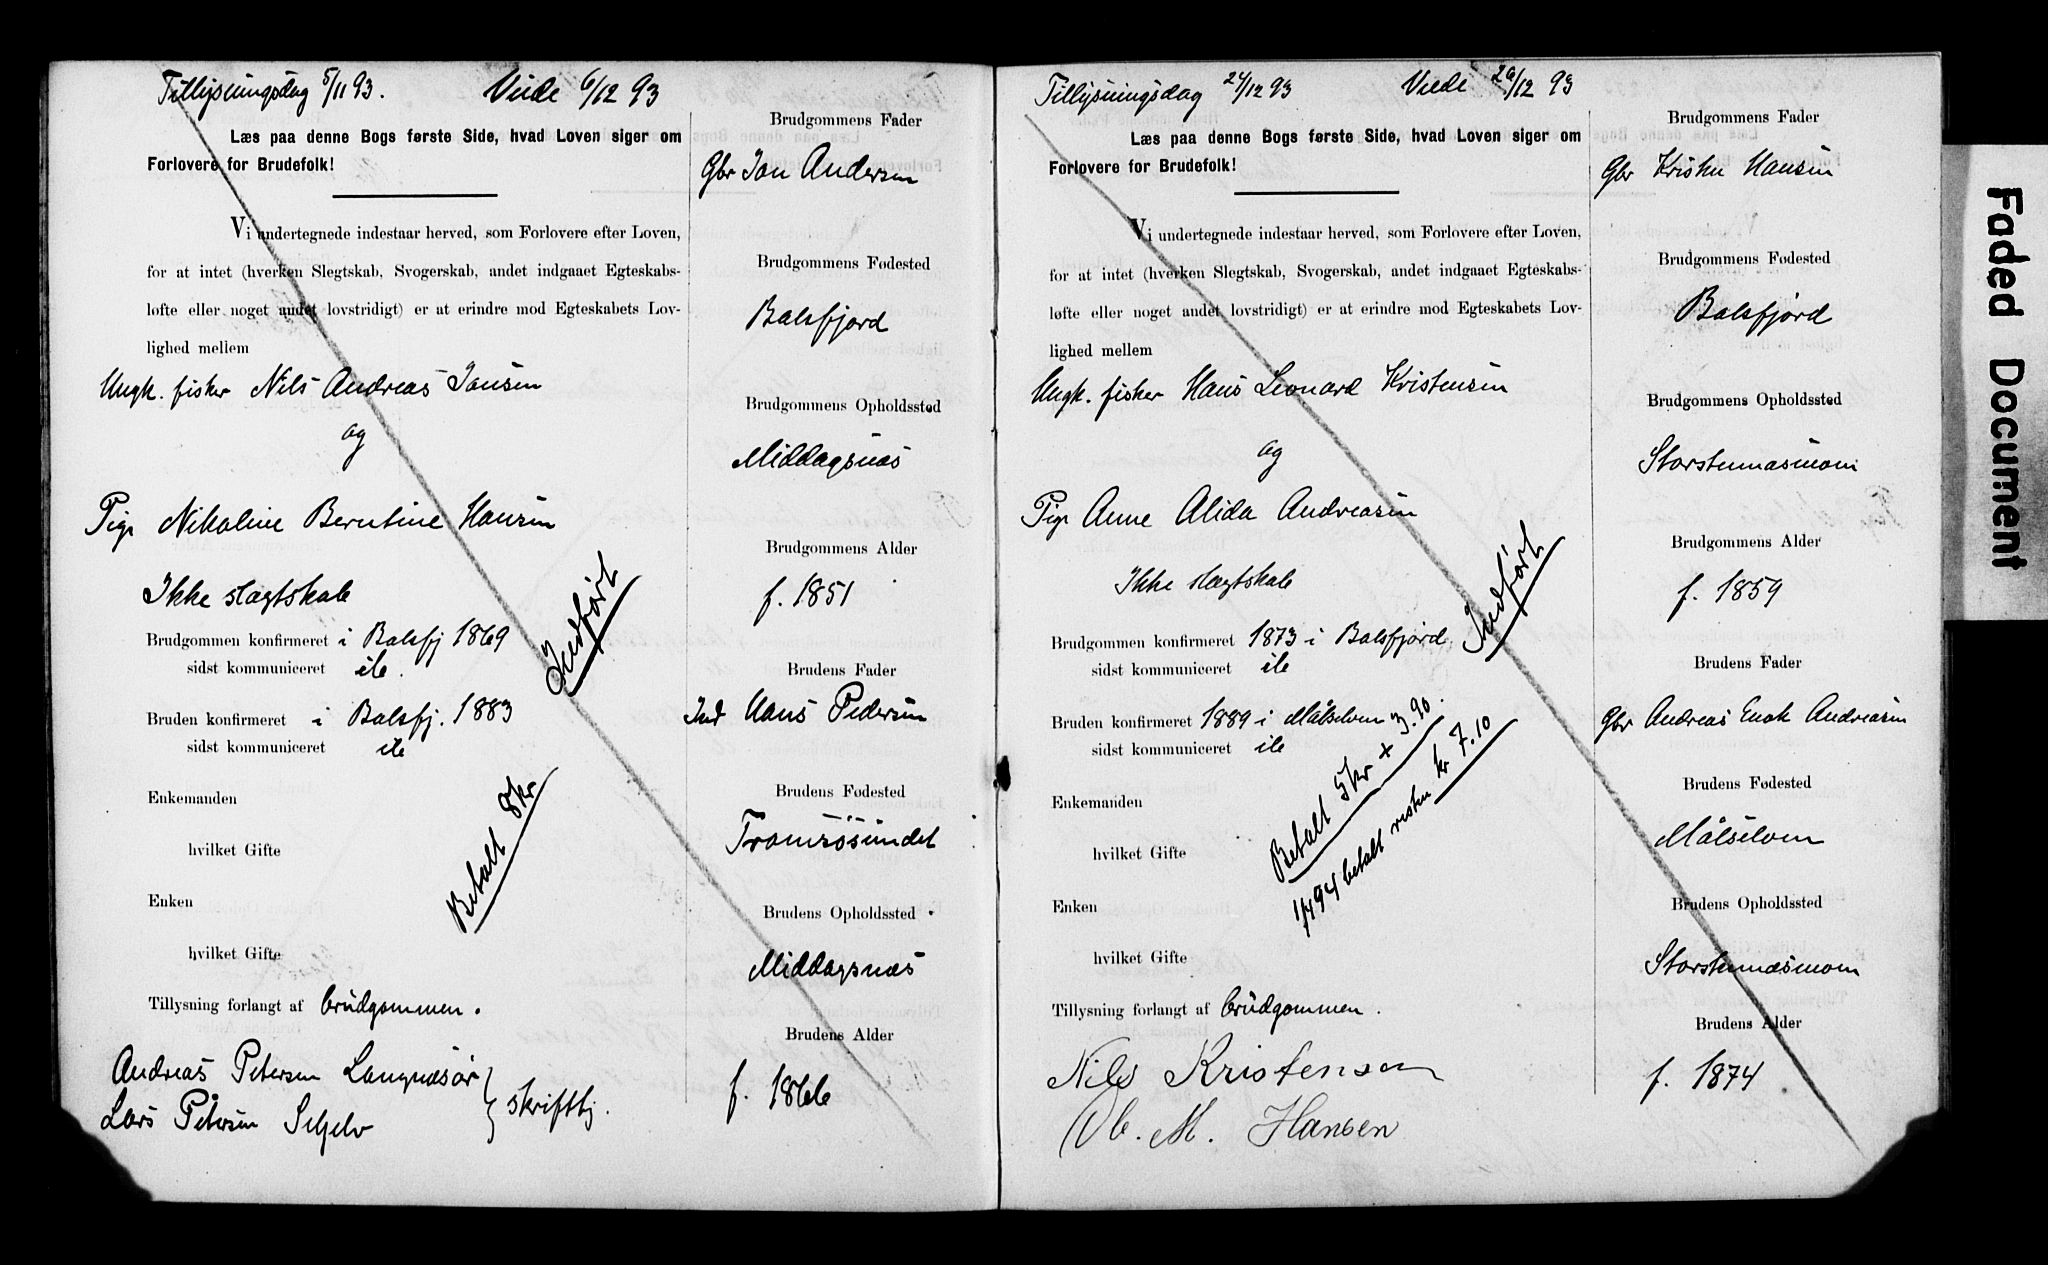 Tillysningsdag 5/11 93. Viede 6/12 93
Læs paa denne Bogs første Side, hvad Loven siger om
Forlovere for Brudefolk!
Vi undertegnede indestaar herved, som Forlovere efter Loven,
for at intet (hverken Slegtskab, Svogerskab, andet indgaaet Egteskabs-
løfte eller noget andet lovstridigt) er at erindre mod Egteskabets Lov-
lighed mellem
Ungk. fisker Nils Andreas Jansen
og
Pige Nikoline Berntine Hansen
Ikke slægtskab
Brudgommen konfirmeret i Balsfj 1869
sidst kommuniceret
Bruden konfirmeret i Balsfj. 1883
sidst kommuniceret
Indført
Enkemanden
hvilket Gifte
Enken
hvilket Gifte
Betalt 8 kr
Tillysning forlangt af brudgommen.
Andreas Petersen Langnæsør
Lars Petersen Seljelv
skriftlj.
Brudgommens Fader
Gbr Jan Andersen
Brudgommens Fødested
Balsfjord
Brudgommens Opholdssted
Middagsnæs
Brudgommens Alder
f. 1851
Brudens Fader
Ind Hans Pedersen
Brudens Fødested
Tromsøsundet
Brudens Opholdssted
Middagsnæs
Brudens Alder
f. 1866
Tillysningsdag 24/12 93 Viede 29/12 93
Læs paa denne Bogs første Side, hvad Loven siger om
Forlovere for Brudefolk!
Vi undertegnede indestaar herved, som Forlovere efter Loven,
for at intet (hverken Slegtskab, Svogerskab, andet indgaaet Egteskabs-
løfte eller noget andet lovstridigt) er at erindre mod Egteskabets Lov-
lighed mellem
Ungk. fisker Hans Leonard Kristensen
og
Pige Anne Alida Andreasen
Ikke slægtskab
Brudgommen konfirmeret 1873 i Balsfjord
sidst kommuniceret
Bruden konfirmeret 1889 i Målselven
sidst kommuniceret
Indført
Enkemanden
hvilket Gifte
Enken
hvilket Gifte
Betalt 5 kr + 3.90.
1/4 94 betalt resten kr 7.10
Tillysning forlangt af brudgommen.
Nils Kristensen
Ol. M. Hansen
Brudgommens Fader
Gbr Kristen Hansen
Brudgommens Fødested
Balsfjord
Brudgommens Opholdssted
Storstennæsmoen
Brudgommens Alder
f. 1859
Brudens Fader
Gbr Andreas Enok Andreasen
Brudens Fødested
Målselven
Brudens Opholdssted
Storstennæsmoen
Brudens Alder
f. 1874
Faded Document